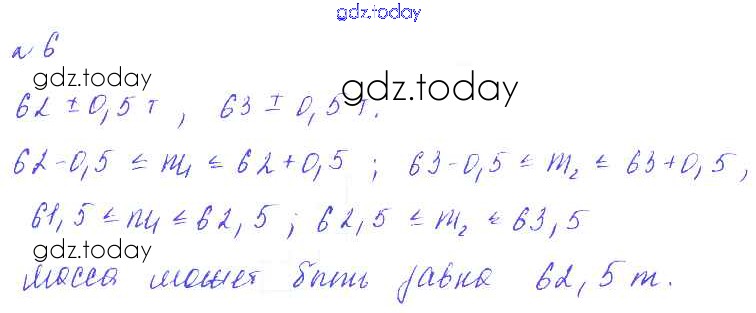 gdz.today
№ 6
gdz.today
gdz.today
62 ± 0,5 т, 63 ± 0,5 т.
62-0,5 ≤ m₁ ≤ 62+0,5 ; 63-0,5 ≤ m₂ ≤ 63+0,5,
61,5 ≤ m₁ ≤ 62,5 ; 62,5 ≤ m₂ ≤ 63,5
gdz.today
масса может быть равна 62,5 т.